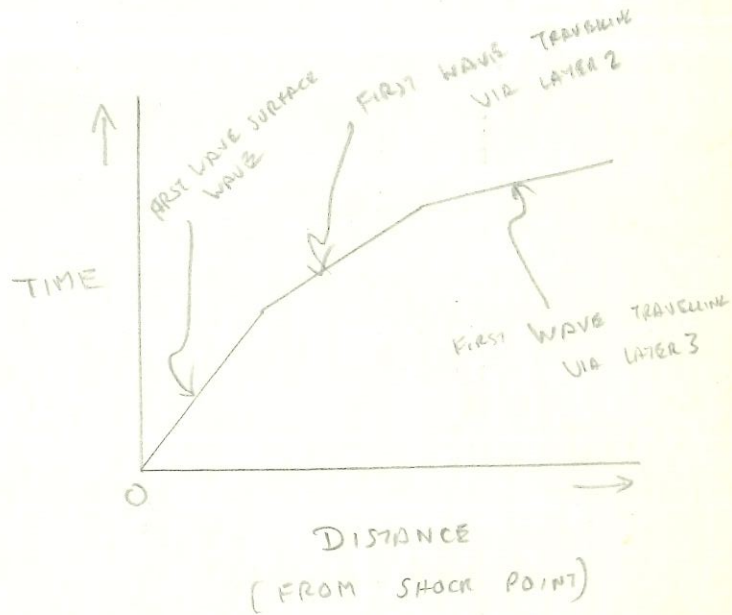 FIRST WAVE SURFACE
WAVE
FIRST WAVE TRAVELLING
VIA LAYER 2
TIME
FIRST WAVE TRAVELLING
VIA LAYER 3
O
DISTANCE
(FROM SHOCK POINT)